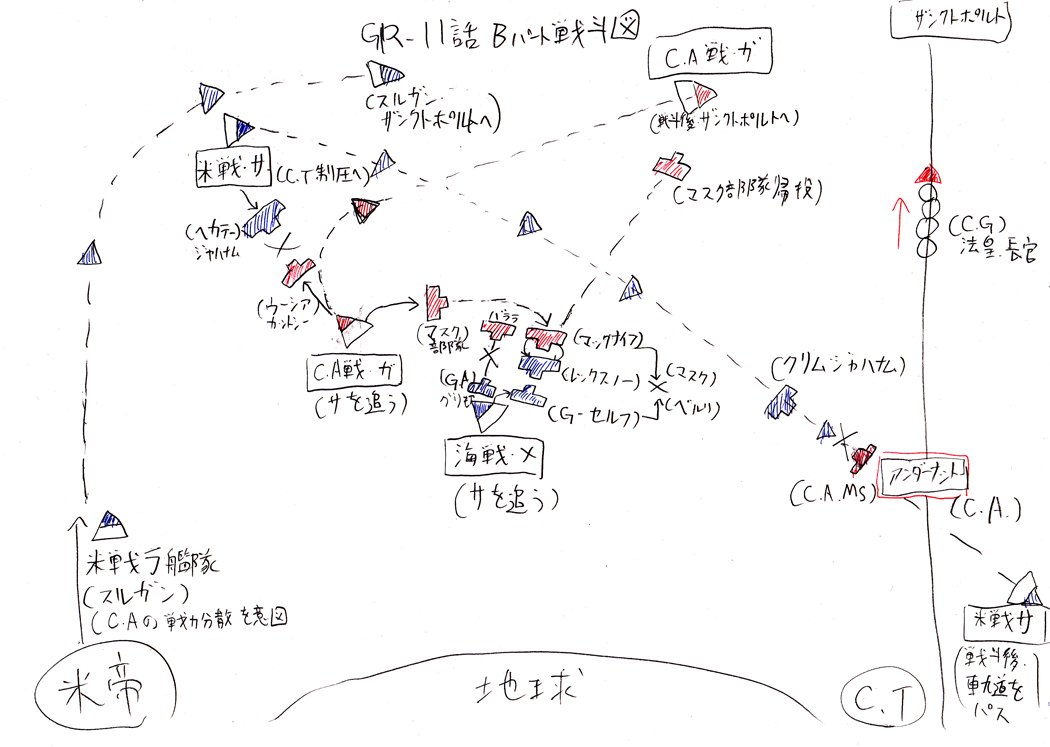 GR-11話 Bパート戦斗図
ザンクトポルト
C.A戦・ガ
(戦斗後ザンクトポルトへ)
(スルガン
ザンクトポルトへ)
米戦・サ
(C.T制圧へ)
(マスク部隊帰投)
(C.G)
法皇.長官
(ヘカテー)
ジャハナム
(ウーシア)
カットシー
(マスク)
部隊
バララ
(マックナイフ)
(G.A)
グリモア
(レックスノー)
(マスク)
(ベルリ)
(G-セルフ)
(クリムジャハナム)
C.A戦・ガ
(サを追う)
海戦・メ
(サを追う)
(C.A.MS)
アンダーナット
(C.A.)
米戦ラ艦隊
(スルガン)
(C.Aの戦力分散を意図
米戦サ
(戦斗後.
軌道を
パス
米帝
地球
C.T